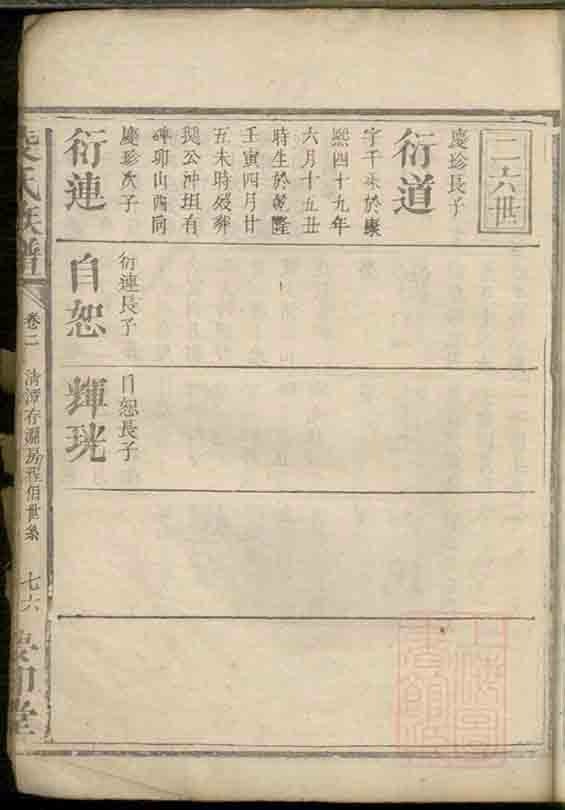 二六世
慶珍長子
衍道
字千釆於康
熙四十九年
六月十五丑
時生於乾隆
壬寅四月廿
五未時殁葬
鵝公沖坦有
碑卯山酉向
慶珍次子
衍連
衍連長子
自恕
自恕長子
輝珖
氏族譜
卷二
清潭存淵房程伯世系
七六
堂
上海圖
書館